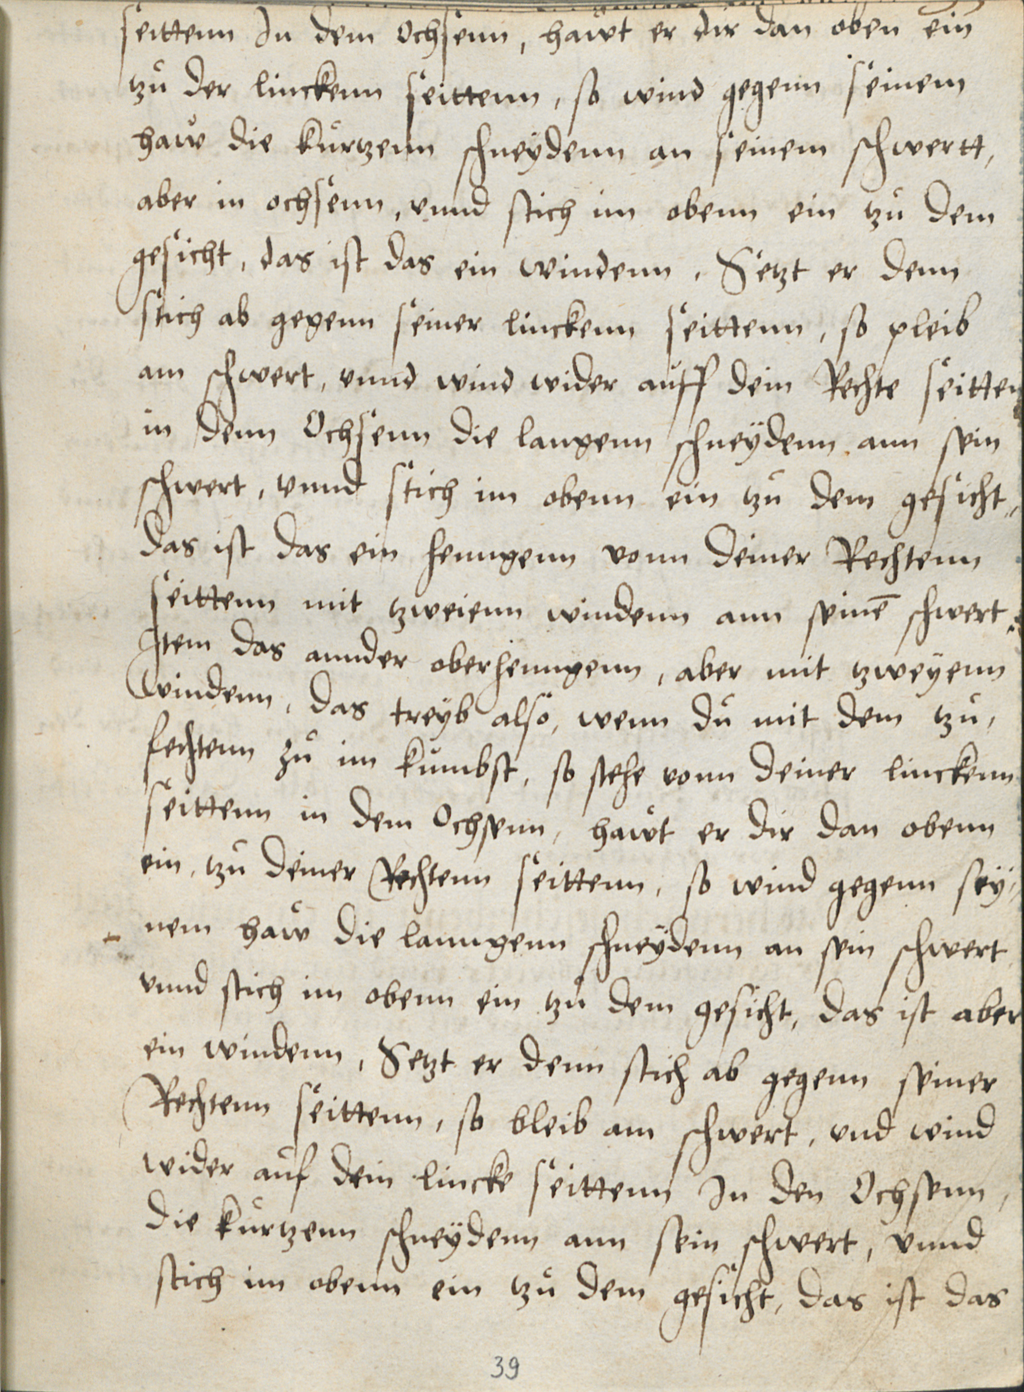 seittenn In dem Ochsenn, hawt er dir dan oben ein
tzů der linckenn seittenn, so wind gegenn seinem
haw die kůrtzenn schneydenn an seinem schwertt,
aber in ochsenn, vnnd stich im obenn ein tzů dem
gesicht, das ist das ein windenn, Setzt er denn
stich ab gegenn seiner linckenn seittenn, so pleib
am schwert, vnnd wind wider aůff dein Rechte seitten
in denn Ochsenn die langenn schneÿdenn ann sein
schwert, vnnd stich im obenn ein tzů dem gesicht,
das ist das ein henngenn vonn deiner Rechtenn
seittenn mit tzweienn windenn ann seinē schwert.
Item das annder oberhenngenn, aber mit tzweÿenn
windenn, das treÿb also, wenn dů mit dem tzů,
fechtenn zů im kůmbst, so stehe vonn deiner linckenn
seittenn in dem Ochsenn, hawt er dir dan obenn
ein, tzů deiner Rechtenn seittenn, so wind gegenn seÿ,
nem haw die lanngenn schneÿdenn an sein schwert
vnnd stich im obenn ein tzů dem gesicht, das ist aber
ein windenn, Setzt er denn stich ab gegenn seiner
Rechtenn seittenn, so bleib am schwert, vnd wind
wider aůf dein lincke seittenn In den Ochsenn,
die kůrtzenn schneÿdenn ann sein schwert, vnnd
stich im obenn ein tzů dem gesicht, das ist das
39